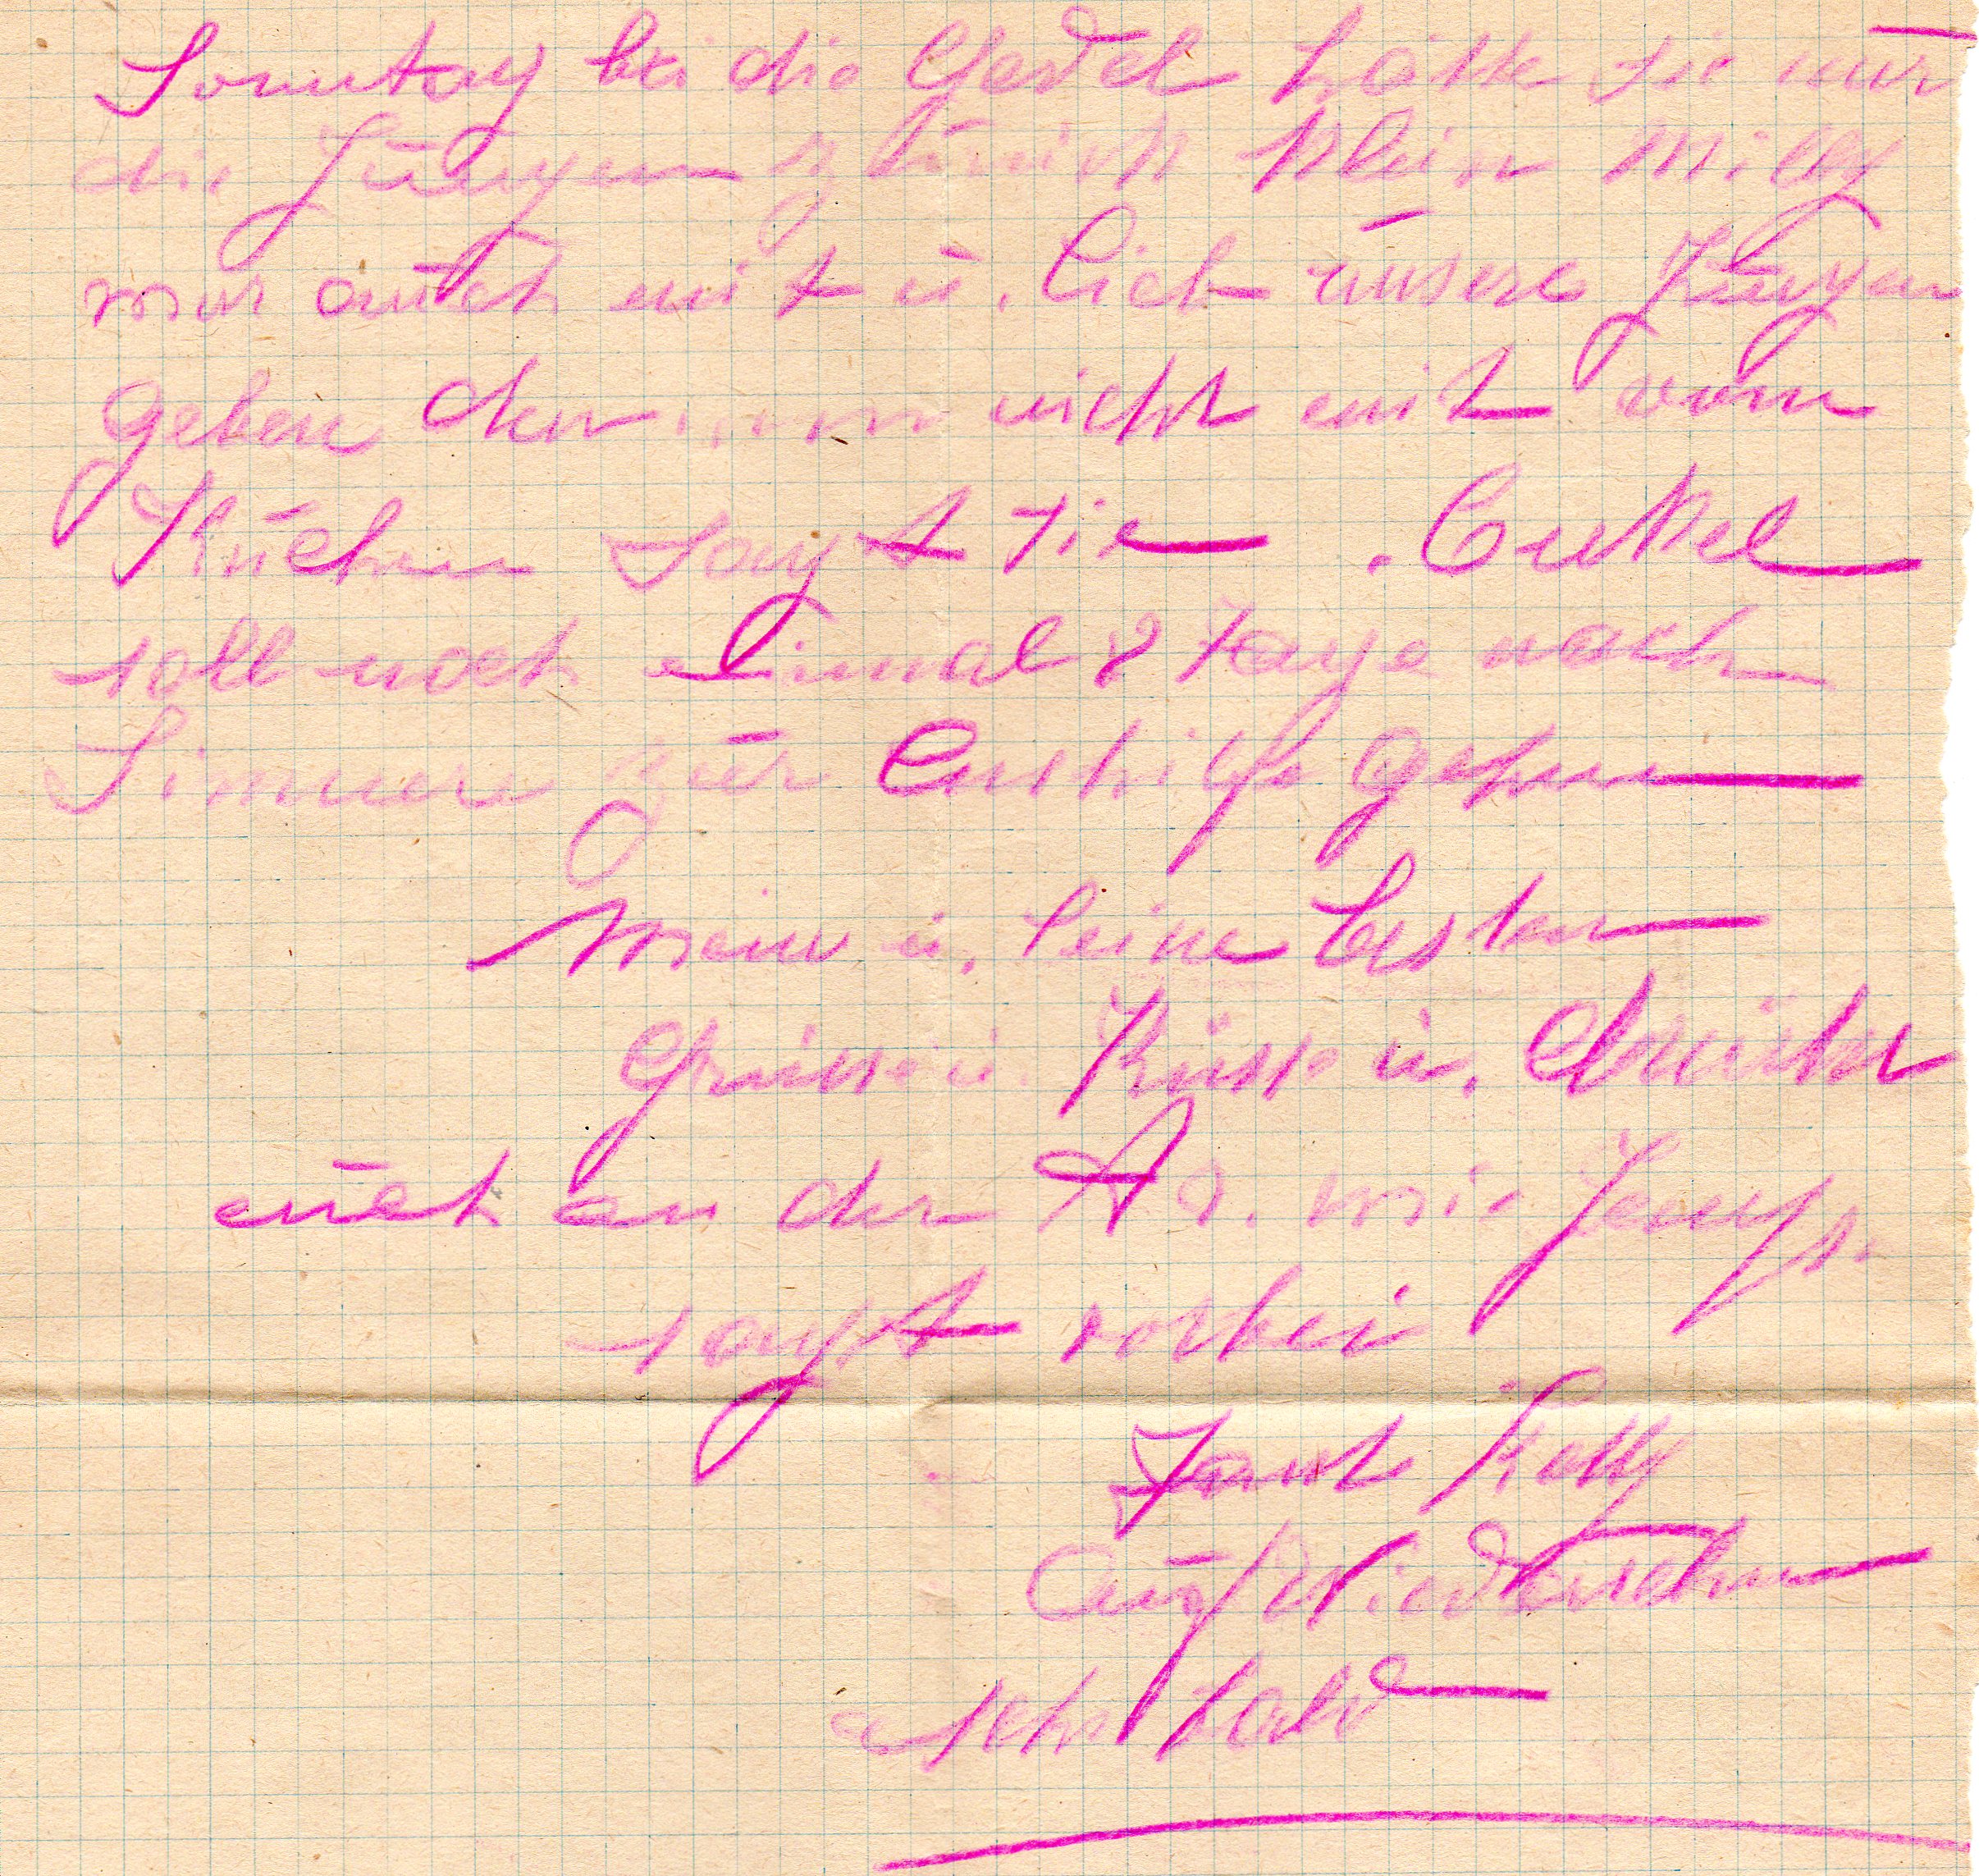 Sonntag bei die Gedel hätte sie nur
die Jungen zurück klein Milly
war auch mit u. lieb unsere Jungen
geben den nicht mit vom
Kuchen sagt sie Enkel
soll noch einmal 8 Tage nach
Simmern zur Aushilfe gehen
Mein u. beste
Grüsse u. Küsse u. Drücker
auch an der wie
sagst vorbei
Tant Katty
Auf Wiedersehn
sehr bald